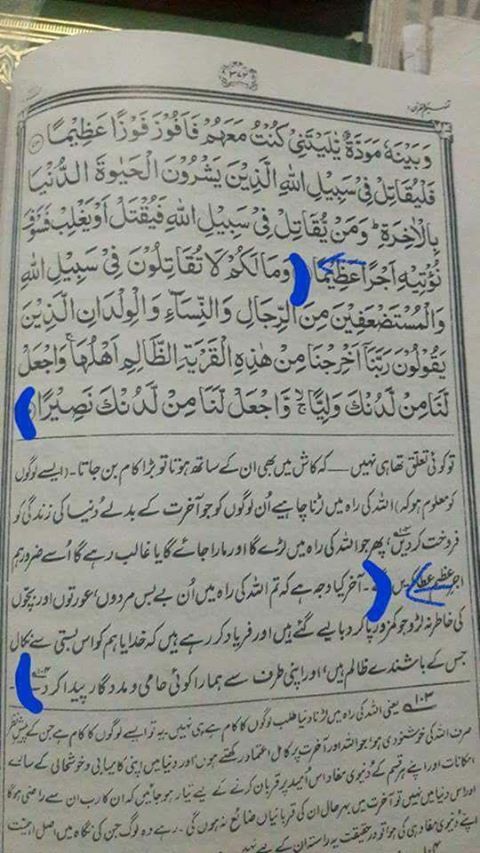 ۳۷۲
وَبَيْنَهٗ مَوَدَّةٌ يّٰلَيْتَنِيْ كُنْتُ مَعَهُمْ فَاَفُوْزَ فَوْزًا عَظِيْمًا
فَلْيُقَاتِلْ فِيْ سَبِيْلِ اللّٰهِ الَّذِيْنَ يَشْرُوْنَ الْحَيٰوةَ الدُّنْيَا
بِالْاٰخِرَةِ ؕ وَمَنْ يُّقَاتِلْ فِيْ سَبِيْلِ اللّٰهِ فَيُقْتَلْ اَوْ يَغْلِبْ فَسَوْفَ
نُؤْتِيْهِ اَجْرًا عَظِيْمًا وَمَا لَكُمْ لَا تُقَاتِلُوْنَ فِيْ سَبِيْلِ اللّٰهِ
وَالْمُسْتَضْعَفِيْنَ مِنَ الرِّجَالِ وَالنِّسَآءِ وَالْوِلْدَانِ الَّذِيْنَ
يَقُوْلُوْنَ رَبَّنَآ اَخْرِجْنَا مِنْ هٰذِهِ الْقَرْيَةِ الظَّالِمِ اَهْلُهَا ۚ وَاجْعَلْ
لَّنَا مِنْ لَّدُنْكَ وَلِيًّا ۙۚ وَّاجْعَلْ لَّنَا مِنْ لَّدُنْكَ نَصِيْرًا
تو کوئی تعلق تھا ہی نہیں — کہ کاش میں بھی ان کے ساتھ ہوتا تو بڑا کام بن جاتا۔ (ایسے لوگوں
کو معلوم ہو کہ) اللہ کی راہ میں لڑنا چاہیے اُن لوگوں کو جو آخرت کے بدلے دُنیا کی زندگی کو
فروخت کر دیں، پھر جو اللہ کی راہ میں لڑے گا اور مارا جائے گا یا غالب رہے گا اُسے ضرور ہم
اجرِ عظیم عطا کریں گے۔ آخر کیا وجہ ہے کہ تم اللہ کی راہ میں اُن بے بس مردوں، عورتوں اور بچّوں
کی خاطر نہ لڑو جو کمزور پا کر دبا لیے گئے ہیں اور فریاد کر رہے ہیں کہ خدایا ہم کو اس بستی سے نکال
جس کے باشندے ظالم ہیں، اور اپنی طرف سے ہمارا کوئی حامی و مددگار پیدا کر دے
۱۰۳ یعنی اللہ کی راہ میں لڑنا دنیا طلب لوگوں کا کام ہے ہی نہیں۔ یہ تو ایسے لوگوں کا کام ہے جن کے پیشِ نظر
صرف اللہ کی خوشنودی ہو، جو اللہ اور آخرت پر کامل اعتماد رکھتے ہوں اور دنیا میں اپنی کامیابی و خوشحالی کے سارے
امکانات اور اپنے ہر قسم کے دُنیوی مفاد اس اُمید پر قربان کرنے کے لیے تیار ہو جائیں کہ ان کا رب ان سے راضی ہوگا
اور اس دنیا میں نہیں تو آخرت میں بہرحال ان کی قربانیاں ضائع نہ ہوں گی۔ رہے وہ لوگ جن کی نگاہ میں اصل اہمیت
اپنے دُنیوی مفاد ہی کی ہو، تو درحقیقت یہ راستہ ان کے لیے نہیں